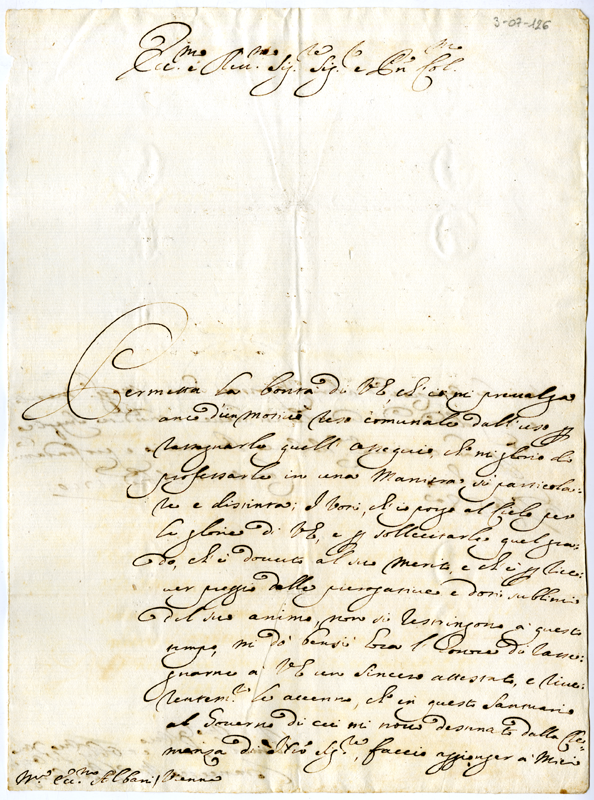 3-07-126
Ecc.mo e Rev.mo Sig.re Sig.re e Pn Col.mo
Permetta la bontà di V.E. ch'io mi prevalga
anco d'un motivo reso comunale dall'uso p
rassegnarle quell'ossequio, che mi glorio di
professarle in una maniera sì particola-
re e distinta; I voti, ch'io porgo al Cielo per
le glorie di V.E. e p sollecitarle quel gra-
do, ch'è dovuto al suo merito, e ch'è p rice-
ver preggio dalle prerogative e doti sublimi
del suo animo, non si restringono a questo
tempo, mi dà bensì ora l'onore di rasse-
gnarne a V.E. un sincero attestato, e rive-
rentem.te le accenno, che in questo Santuario
al Governo di cui mi trovo destinato dalla Cle-
menza di N'ro Sig.re, faccio aggionger a' miei
M.r Ecc.mo Albani / Vienna